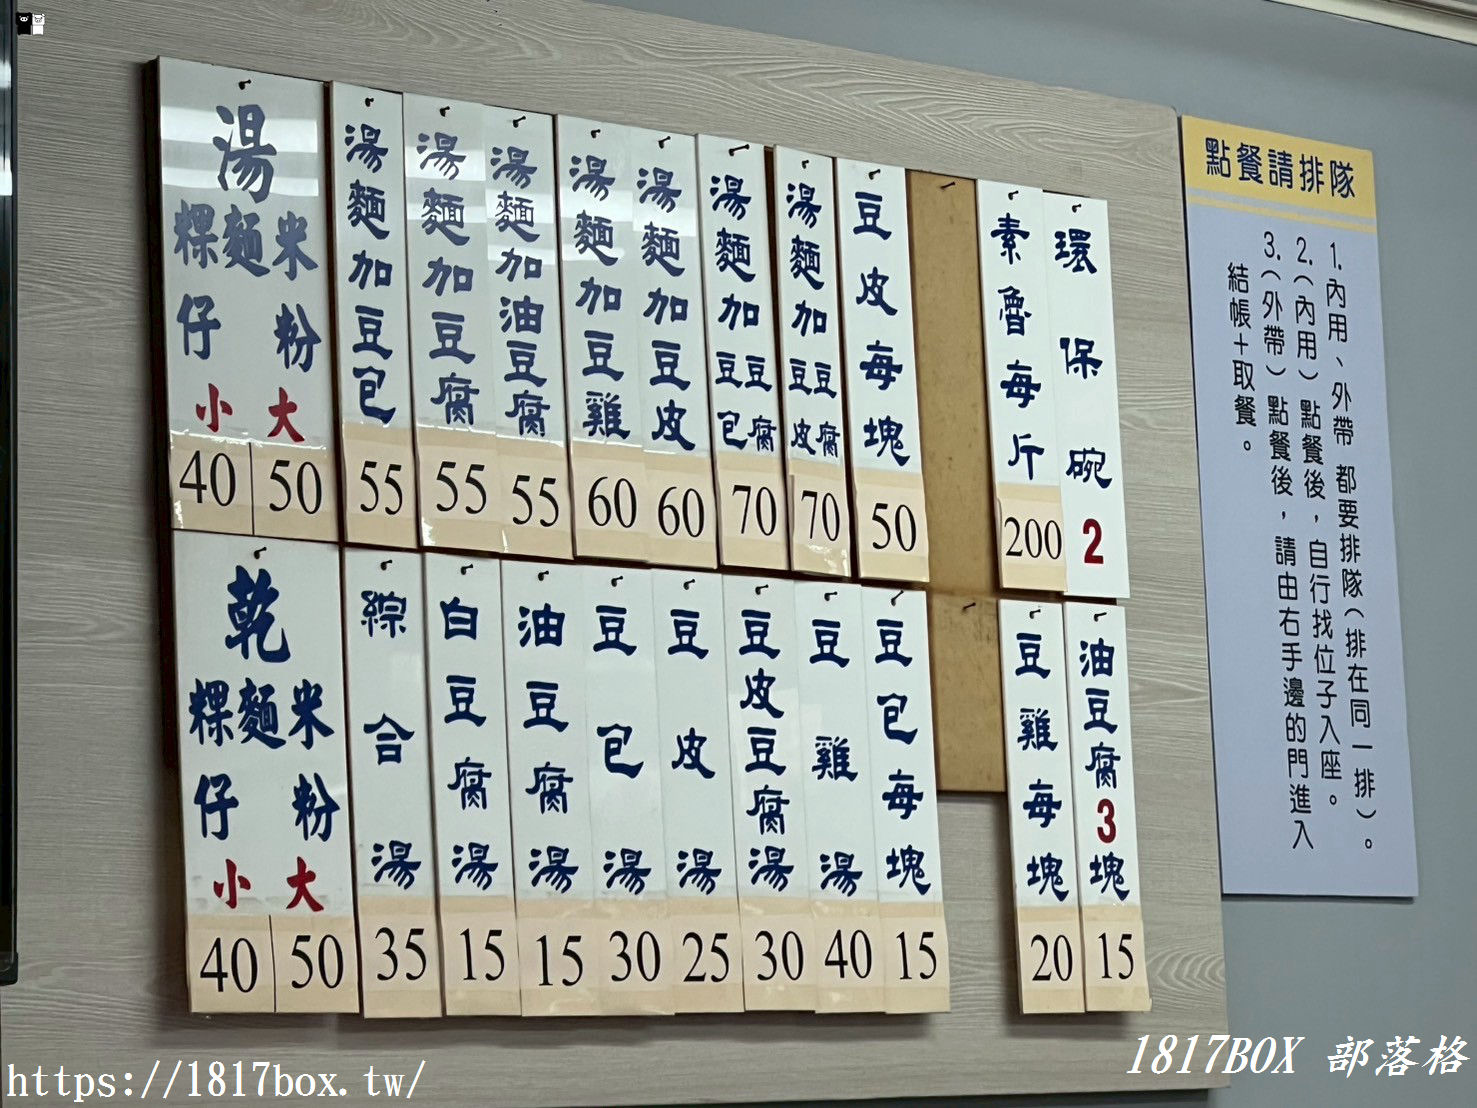 湯
粿仔 麵 米粉
小 大
40 50
湯麵加豆包
55
湯麵加豆腐
55
湯麵加油豆腐
55
湯麵加豆雞
60
湯麵加豆皮
60
湯麵加豆包豆腐
70
湯麵加豆皮豆腐
70
豆皮每塊
50
素魯每斤
200
環保碗
2
乾
粿仔 麵 米粉
小 大
40 50
綜合湯
35
白豆腐湯
15
油豆腐湯
15
豆包湯
30
豆皮湯
25
豆皮豆腐湯
30
豆雞湯
40
豆包每塊
15
豆雞每塊
20
油豆腐3塊
15
點餐請排隊
1.內用、外帶 都要排隊(排在同一排)。
2.(內用)點餐後,自行找位子入座。
3.(外帶)點餐後,請由右手邊的門進入
結帳+取餐。
https://1817box.tw/
1817BOX 部落格